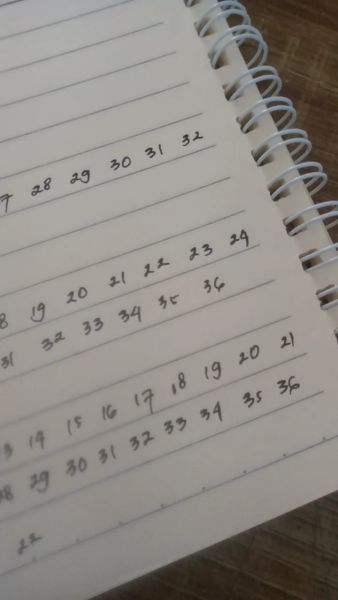 7 28 29 30 31 32
8 19 20 21 22 23 24
31 32 33 34 35 36
13 14 15 16 17 18 19 20 21
28 29 30 31 32 33 34 35 36
22